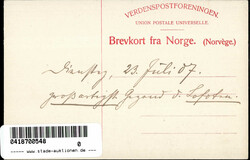 VERDENSPOSTFORENINGEN.
UNION POSTALE UNIVERSELLE.
Brevkort fra Norge. (Norvège.)
Dienstag, 23. Juli 07.
großartigste Gegend d. Lofoten.
0418700548
0
www.slade-auktionen.de